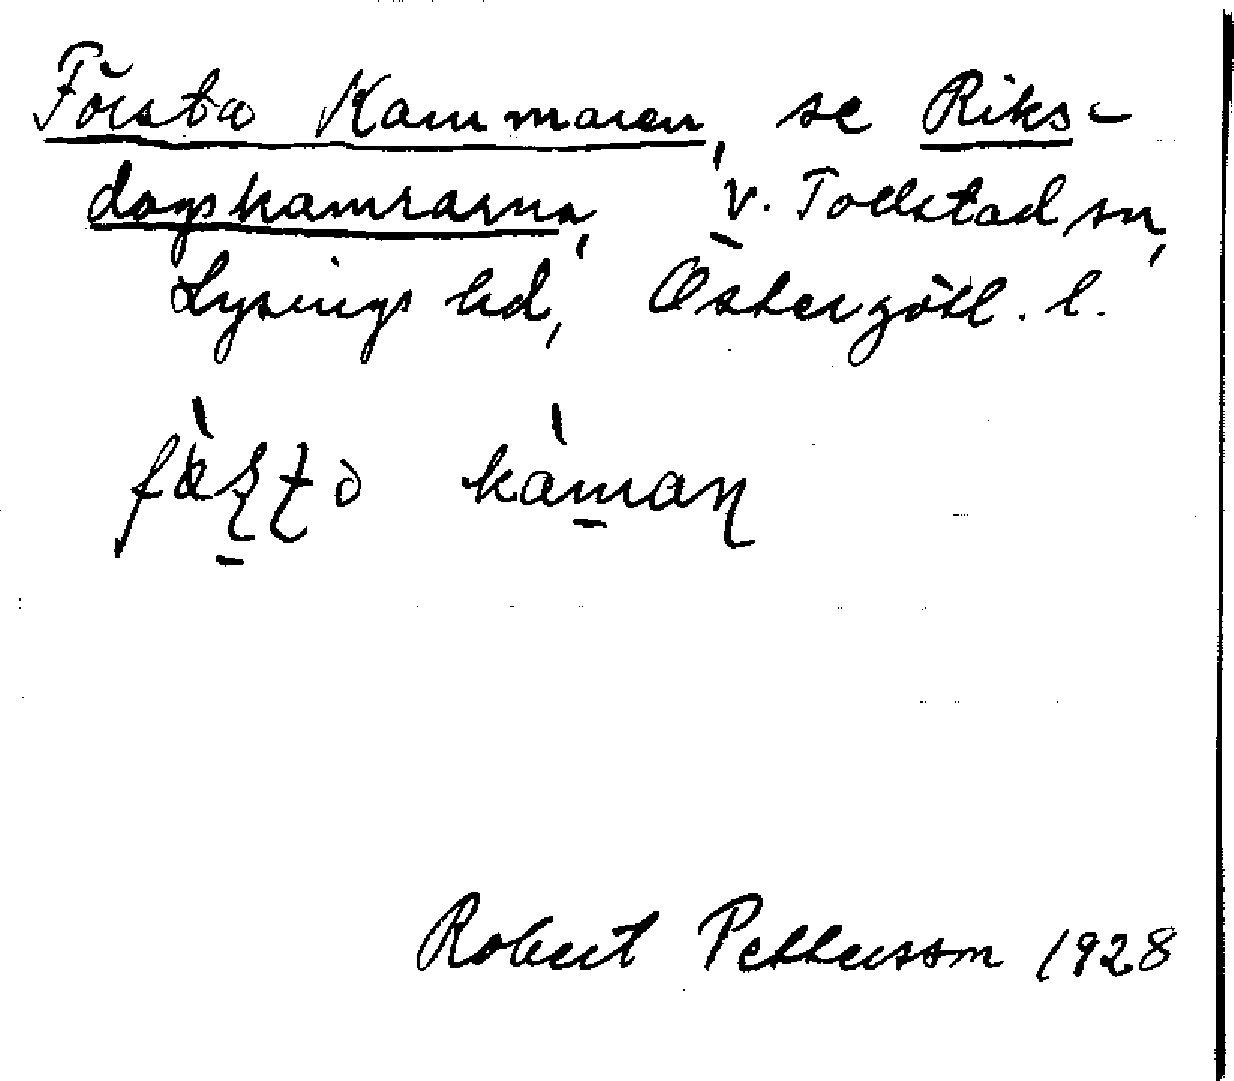 Första Kammaren, se Riks-
dagskamrarna, V. Tollstad sn,
Lysings hd, Östergötl. l.
kàmaɳ
Robert Pettersson 1928